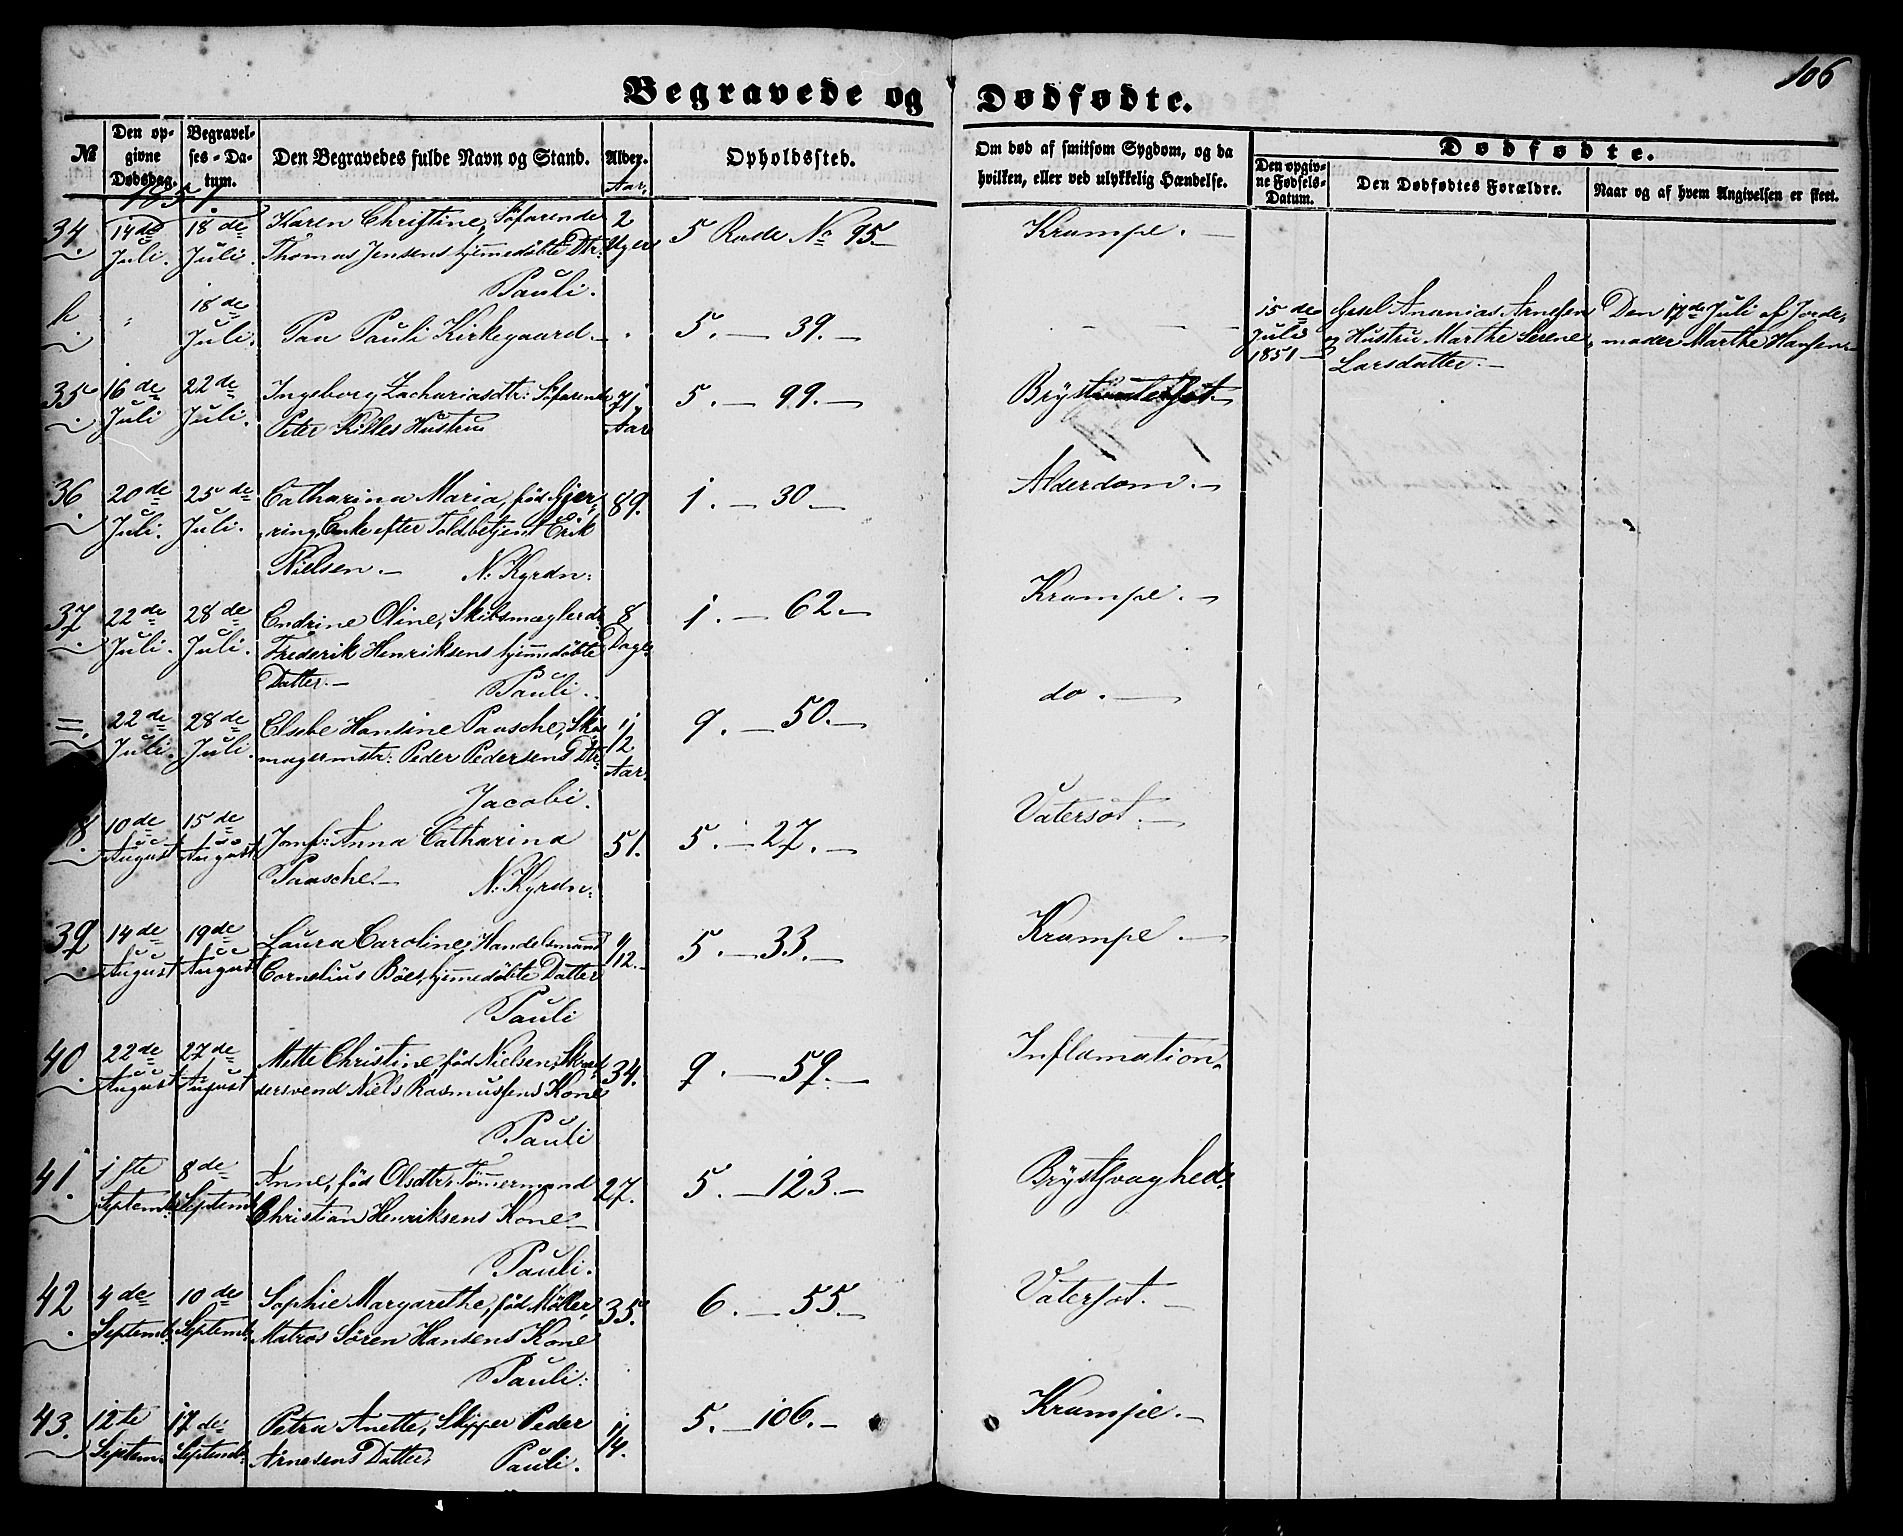 106
Begravede og Dødfødte.
№
Den opgivne Dødsdag.
Begravelses-Datum.
Den Begravedes fulde Navn og Stand.
Alder.
Aar.
Opholdssted.
Om død af smitsom Sygdom, og da hvilken, eller ved ulykkelig Hændelse.
Dødfødte.
Den opgivne Fødsels-Datum.
Den Dødfødtes Forældre.
Naar og af hvem Angivelsen er skeet.
1851
34. 14de Juli. 18de Juli. Karen Christine, Söfarende 2 Uger 5 Rode No 95.— Krampe.—
Thomas Jensens hjemmedöbte Dtr:
Pauli.
18de Juli. Paa Pauli Kirkegaard.— 5.— 39.— 15de Juli 1851— Ananias Arnesen Den 17de Juli af Jorde-
og Hustru Marthe Serene moder Marthe Hansen
Larsdatter.—
35. 16de Juli 22de Juli. Ingeborg Zachariasdtr: Söfarende 71 Aar 5.— 99.—
Peter Killes Hustru
36. 20de Juli. 25de Juli. Catharina Maria, föd Gjer- 89. 1.— 30.— Alderdom.—
ring, Enke efter Toldbetjent Erik
Nielsen.— N: Kyrdn:
37. 22de Juli. 28de Juli. Endrine Oline, Skibsmægler 8 Dage. 1.— 62.— Krampe.—
Frederik Henriksens hjemmedöbte
Datter.— Pauli.
=. 22de Juli. 28de Juli. Elsebe Hansine Paasche, Sko- 1/12 Aar. 9.— 50.— do.—
magermstr: Peder Pedersens Dtr:
Jacobi.
8. 10de August 15de August Jomf: Anna Catharina 51. 5.— 27.— Vatersot.—
Paasche.— N: Kyrdn:
39 14de August 19de August Laura Caroline, Handelsmand 9/12.— 5.— 33.— Krampe.—
Cornelius Böes, hjemmedöbte Datter
Pauli
40. 22de August 27de August Mette Christine, föd Nielsen, Skræd- 34. 9.— 59.— Inflamation.
dersvend Niels Rasmussens Kone
Pauli
41. 1ste Septembr 8de Septembr Anne, föd Olsdtr, Tömmermand 27. 5.— 123.— Brystsvaghed.
Christian Henriksens Kone—
Pauli.
42. 4de Septembr. 10de Septembr. Sophie Margarethe, föd Möller, 35. 6.— 55.— Vatersot.—
Matros Sören Hansens Kone
Pauli:
43. 12te Septem. 17de Septembr. Petra Anette, Skipper Peder 1/4. 5.— 106.— Krampe.—
Arnesens Datter. Pauli.